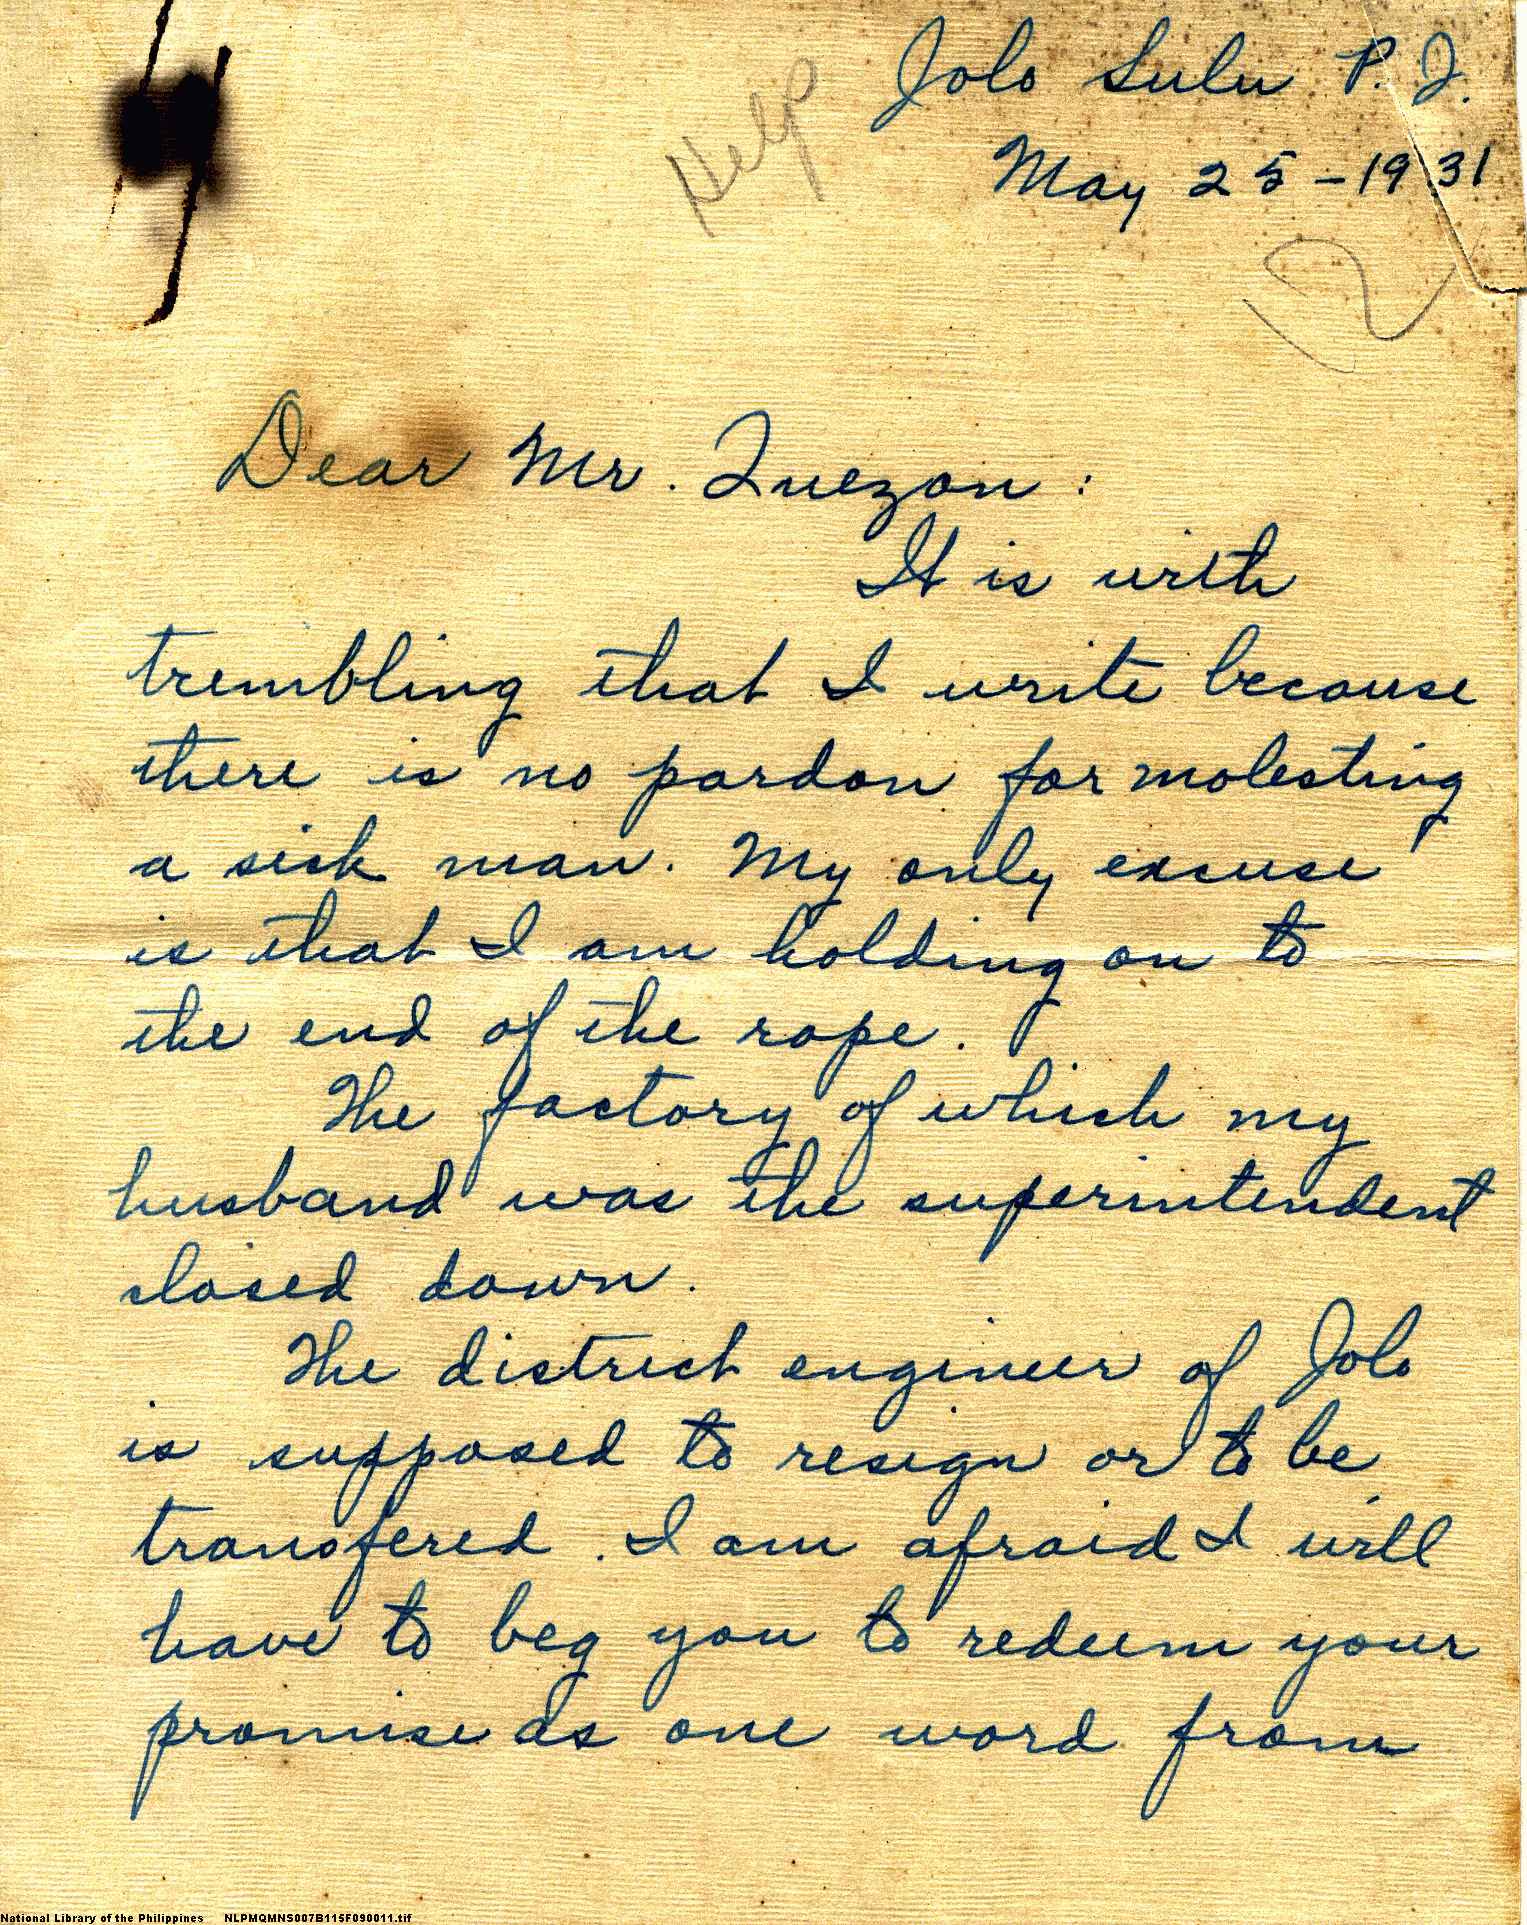 Jolo Sulu P. I.
Help
May 25 - 1931
Dear Mr. Quezon :
It is with
trembling that I write because
there is no pardon for molesting
a sick man. My only excuse
is that I am holding on to
the end of the rope.
The factory of which my
husband was the superintendent
closed down.
The district engineer of Jolo
is supposed to resign or to be
transfered. I am afraid I will
have to beg you to redeem your
promise as one word from
National Library of the Philippines NLPMQMNS007B115F090011.tif